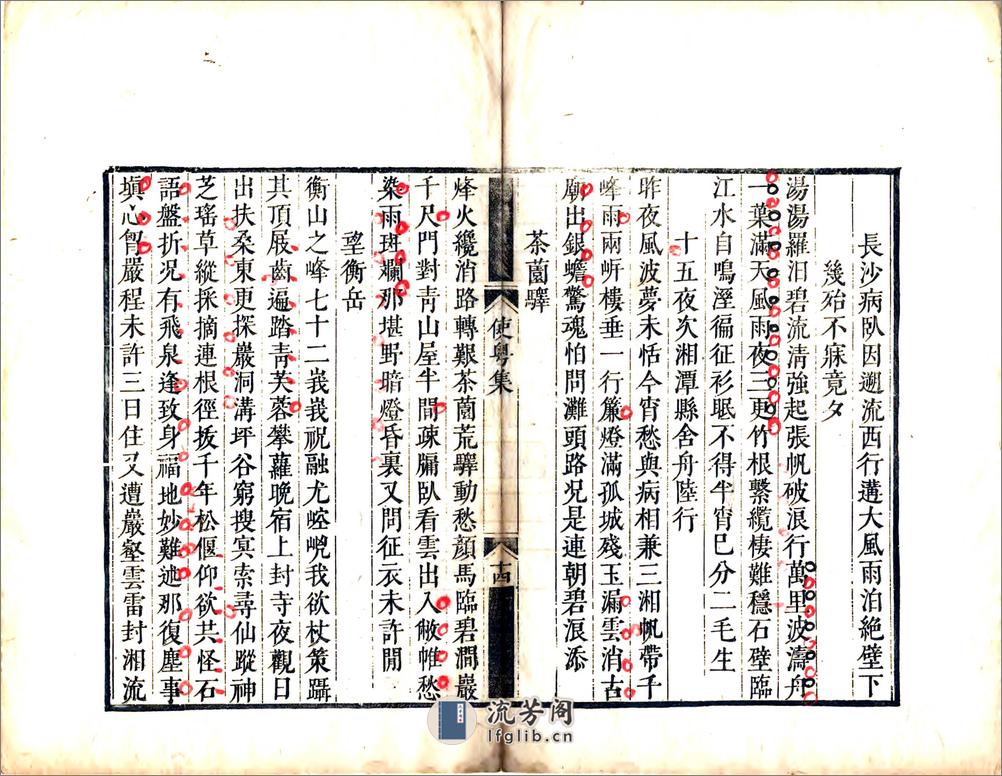 長沙病臥因遡流西行遘大風雨泊絶壁下
幾殆不寐竟夕
湯湯羅汨碧流清強起張帆破浪行萬里波濤舟
一葉滿天風雨夜三更竹根繫纜棲難穩石壁臨
江水自鳴溼徧征衫眠不得半宵已分二毛生
十五夜次湘潭縣舍舟陸行
昨夜風波夢未恬今宵愁與病相兼三湘帆帶千
峰雨兩岍樓垂一行簾燈滿孤城殘玉漏雲消古
廟出銀蟾驚魂怕問灘頭路况是連朝碧浪添
茶薗驛
使粵集
十四
烽火纔消路轉艱茶薗荒驛動愁顔馬臨碧澗巖
千尺門對靑山屋半間疎牖臥看雲出入敝帷愁
染雨斑斕那堪野暗燈昏裏又問征衣未許閒
望衡岳
衡山之峰七十二峩峩祝融尤崆峣我欲杖策躡
其頂屐齒遍踏靑芙蓉攀蘿晚宿上封寺夜觀日
出扶桑東更探巖洞溝坪谷窮搜冥索尋仙蹤神
芝瑤草縱採摘連根徑拔千年松偃仰欲共怪石
語盤折况有飛泉逢致身福地妙難述那復塵事
塡心胷嚴程未許三日住又遭巖壑雲雷封湘流
流芳阁
lfglib.cn